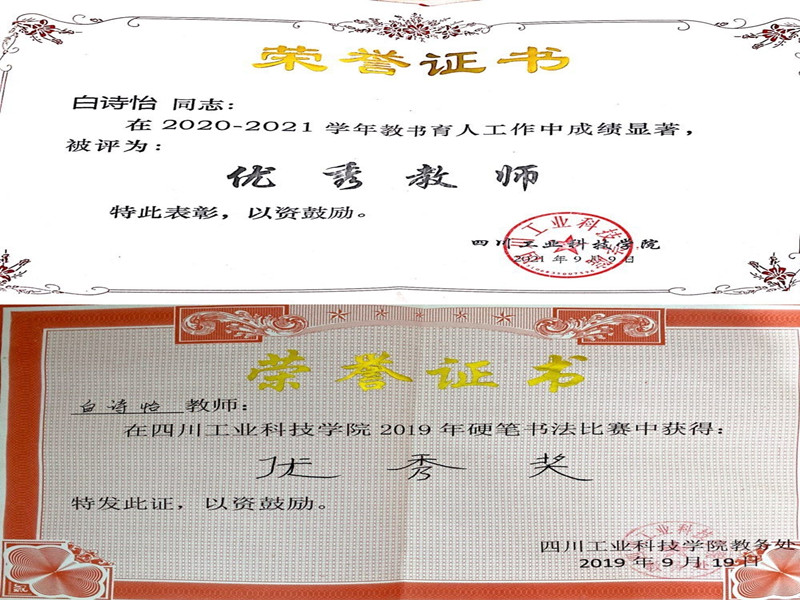 荣誉证书
白诗怡 同志：
在 2020-2021 学年教书育人工作中成绩显著，
被评为：
优秀教师
特此表彰，以资鼓励。
四川工业科技学院
2021 年 9 月 9 日
荣誉证书
白诗怡 教师：
在四川工业科技学院 2019 年硬笔书法比赛中获得：
优秀奖
特发此证，以资鼓励。
四川工业科技学院教务处
2019 年 9 月 19 日